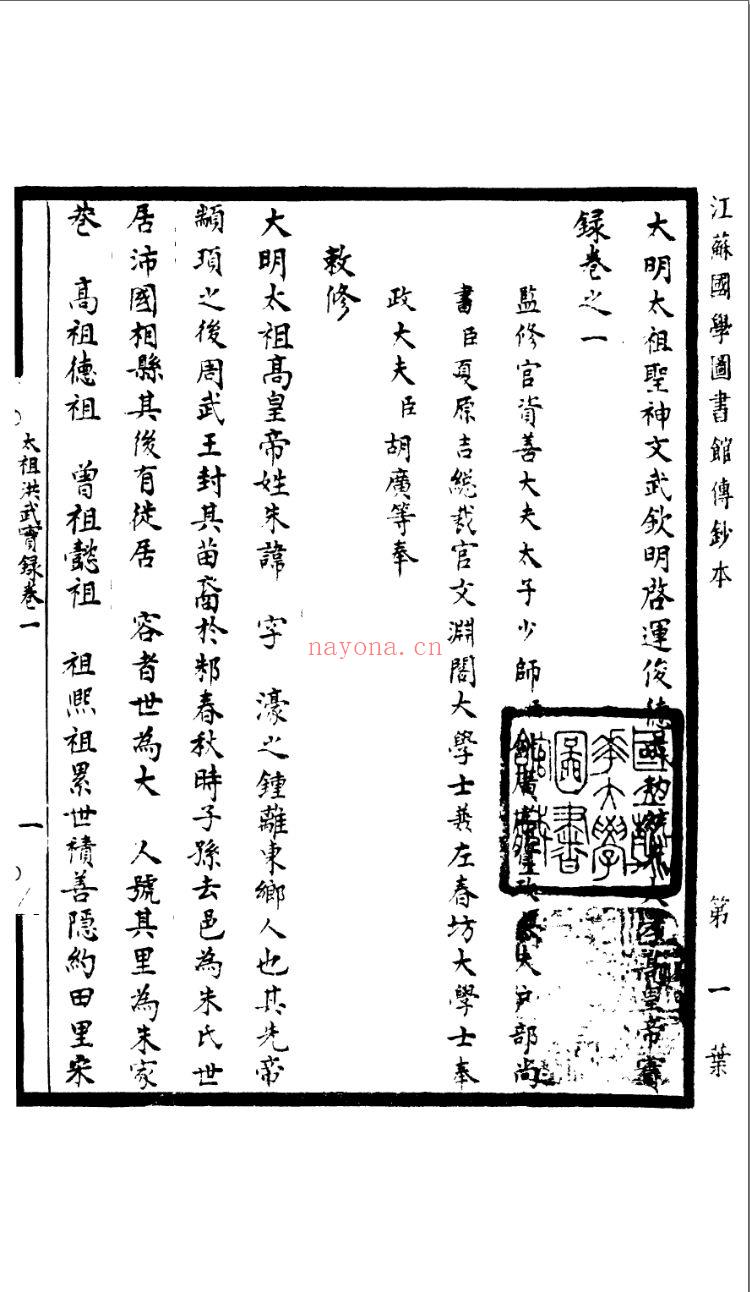 江蘇國學圖書館傳鈔本 第一葉
大明太祖聖神文武欽明啓運俊德高皇帝實
錄卷之一
監修官資善大夫太子少師夫戶部尚
書臣夏原吉總裁官文淵閣大學士兼左春坊大學士奉
政大夫臣胡廣等奉
敕修
大明太祖高皇帝姓朱諱 字 濠之鍾離東鄉人也其先帝
顓頊之後周武王封其苗裔於邾春秋時子孫去邑為朱氏世
居沛國相縣其後有徙居 容者世為大 人號其里為朱家
巷 高祖德祖 曾祖懿祖 祖熙祖累世積善隱約田里宋
太祖洪武實錄卷一 一
華大學
圖書
nayona.cn